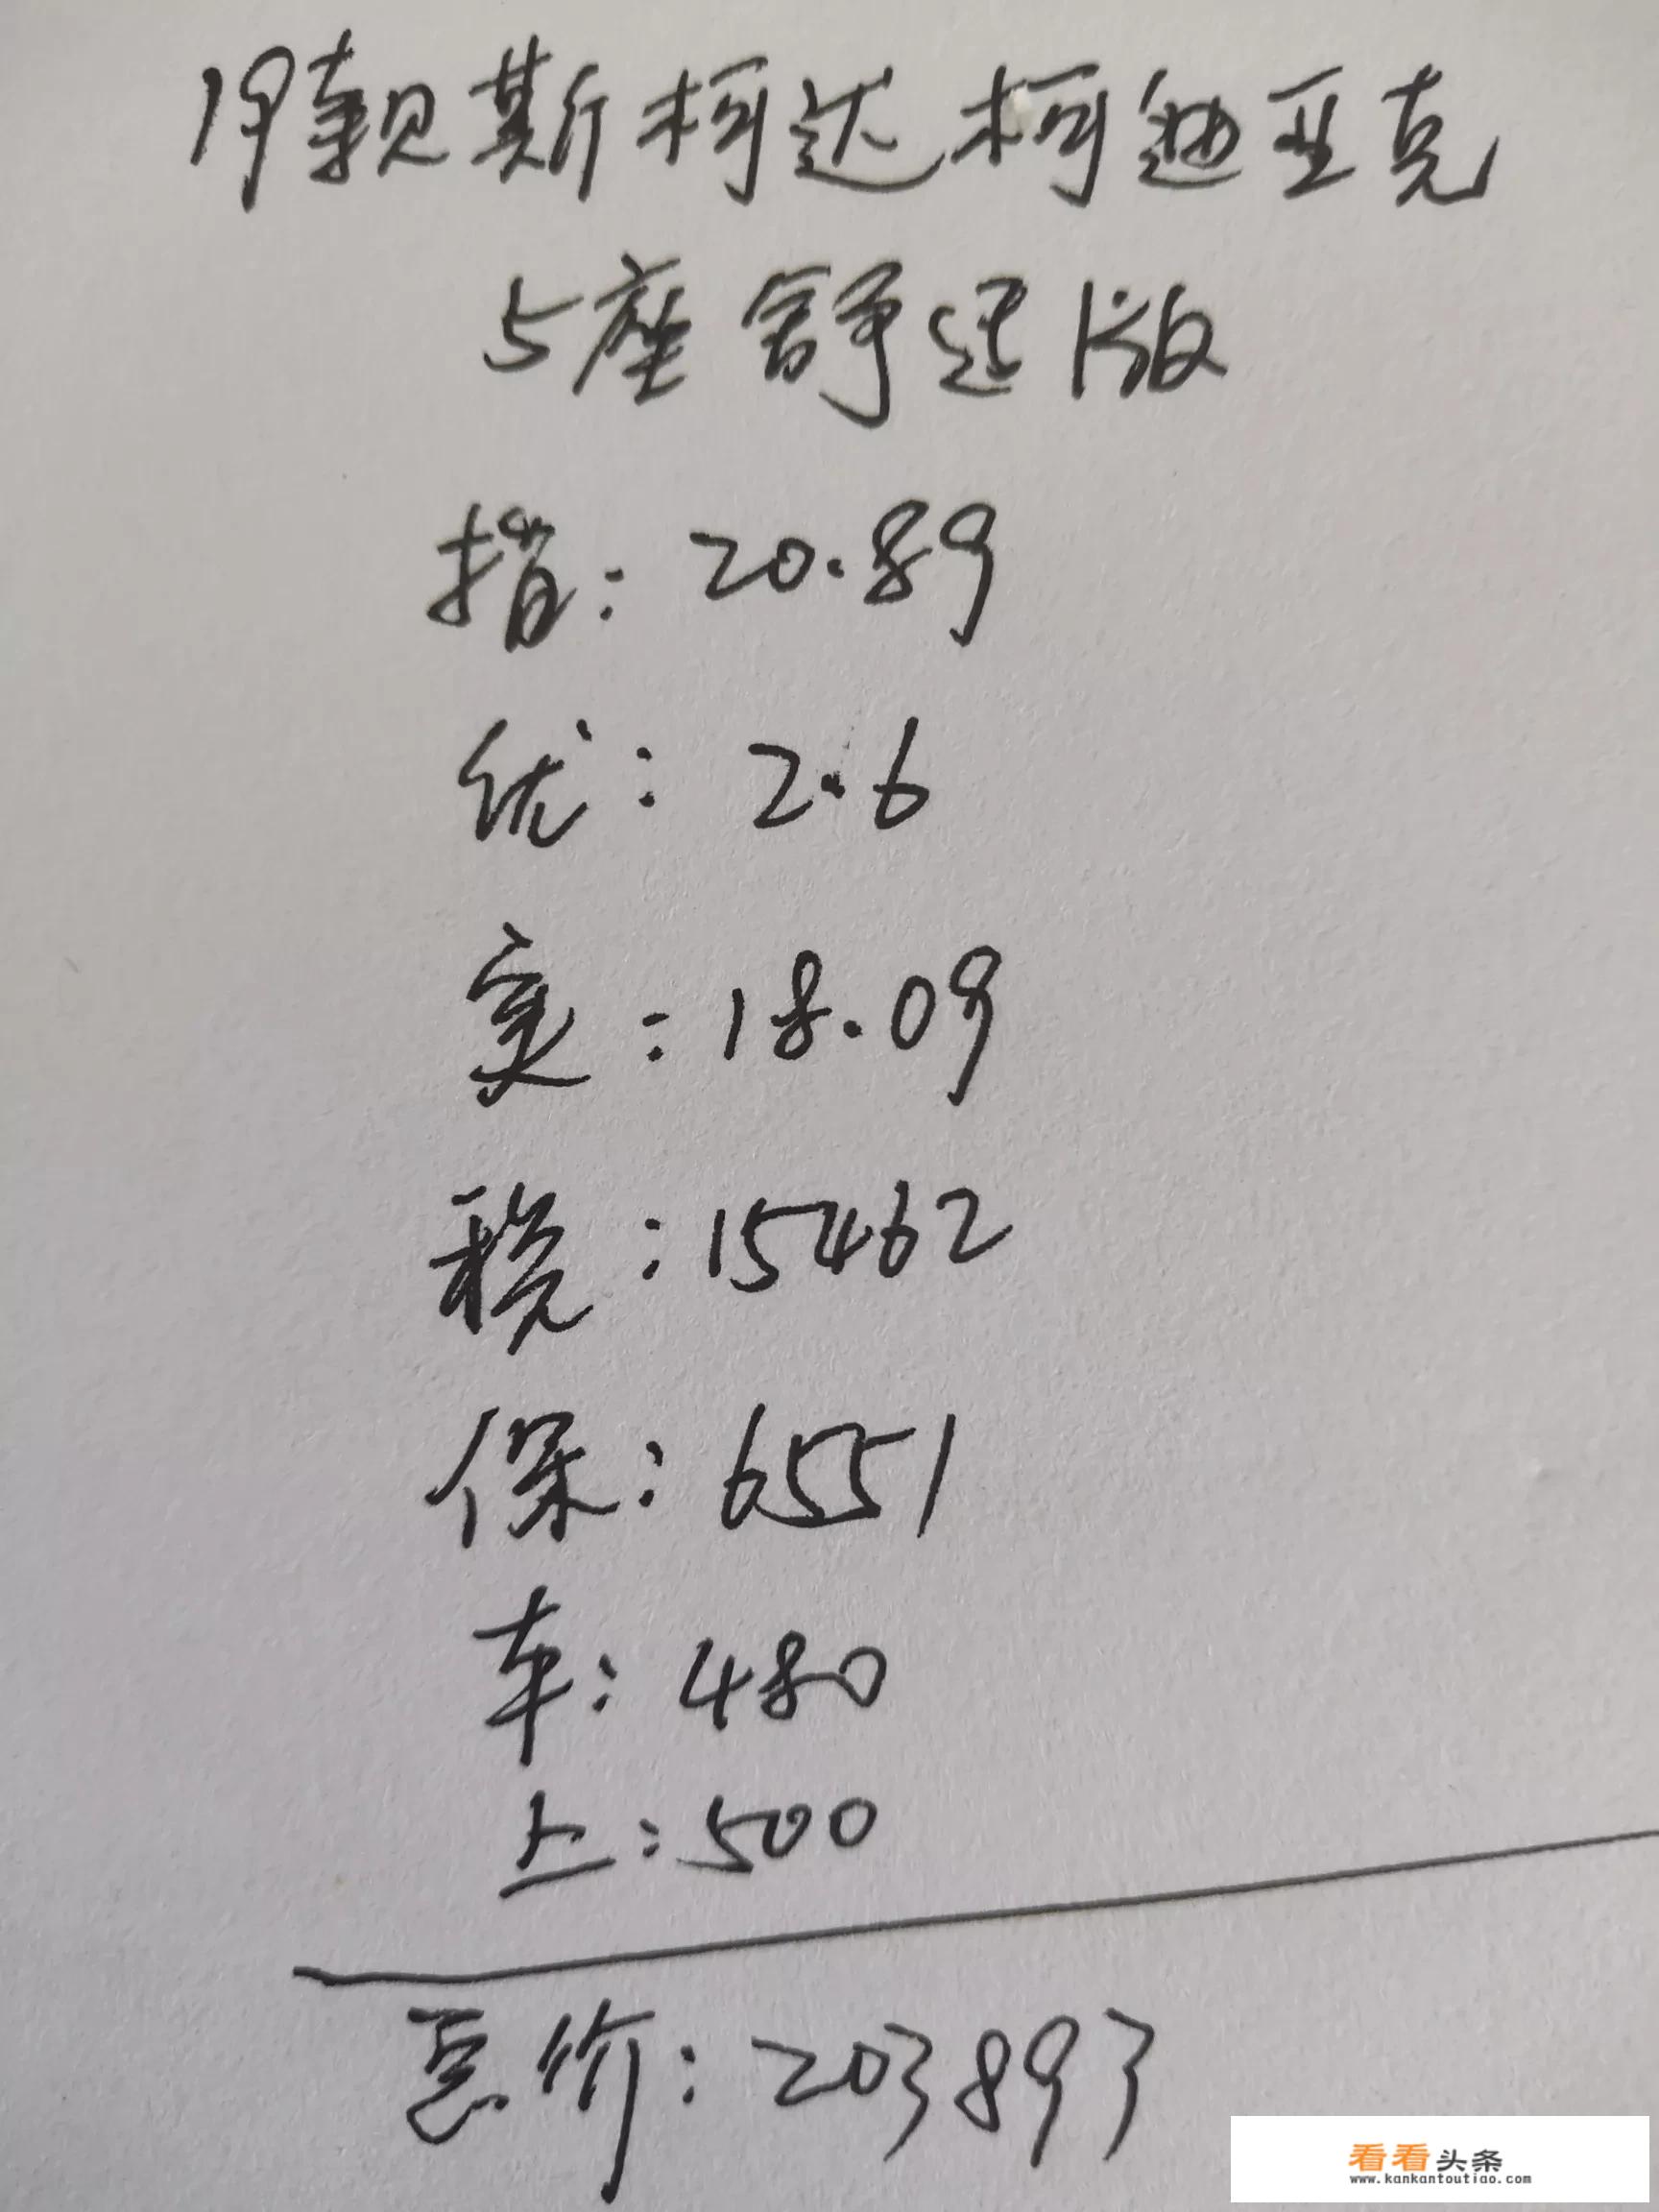 19款斯柯达柯迪亚克
5座舒适版
指: 20.89
优: 2.6
实: 18.09
税: 15462
保: 6551
车: 480
上: 500
总价: 203893
看看头条
www.kankantoutiao.com